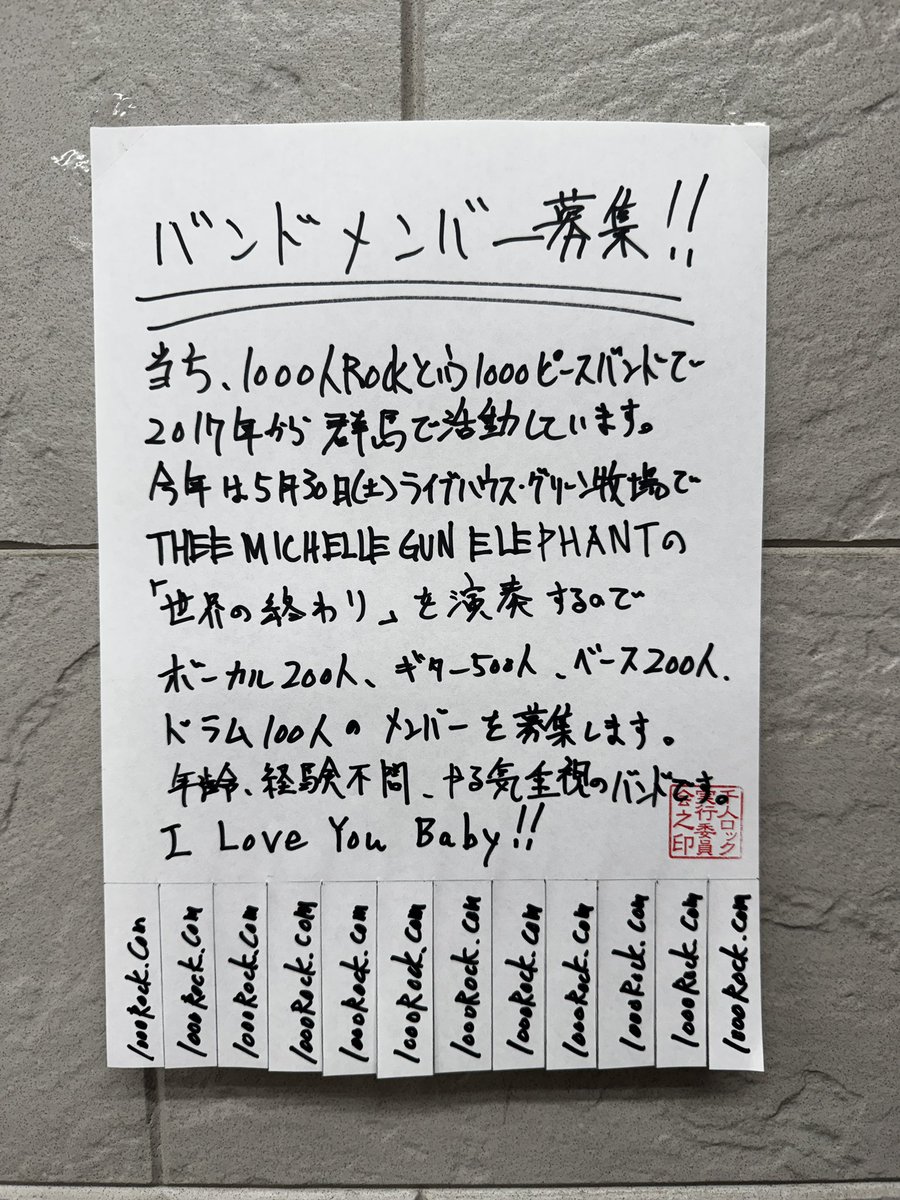 バンドメンバー募集!!
当ち、1000人Rockという1000ピースバンドで
2017年から群馬で活動しています。
今年は5月30日(土)ライブハウス・グリーン牧場で
THEE MICHELLE GUN ELEPHANTの
「世界の終わり」を演奏するので
ボーカル200人、ギター500人、ベース200人、
ドラム100人のメンバーを募集します。
年齢、経験不問、やる気重視のバンドです。
I Love You Baby!!
千人ロック
実行委員
会之印
1000Rock.com
1000Rock.com
1000Rock.com
1000Rock.com
1000Rock.com
1000Rock.com
1000Rock.com
1000Rock.com
1000Rock.com
1000Rock.com
1000Rock.com
1000Rock.com